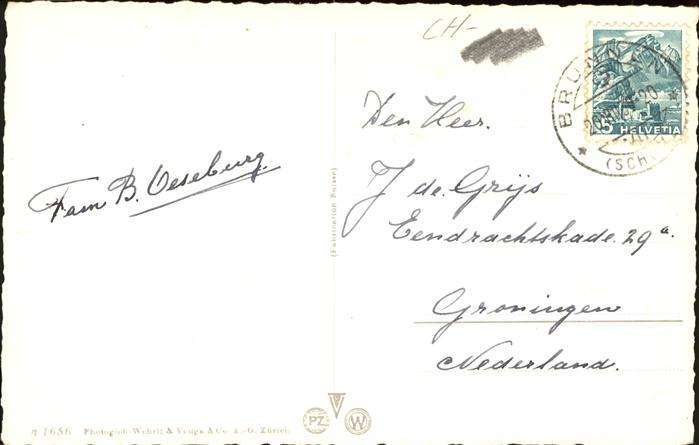 Fam B. Veseburg.
CH-
Den Heer.
J de. Grijs
Eendrachtskade. 29a.
Groningen
Nederland.
BRUNNEN
(SCH
5 HELVETIA
(Fabrication Suisse)
PZ
W
1656 Photogloh-Wehrli & Vouga & Co. A.-G. Zürich